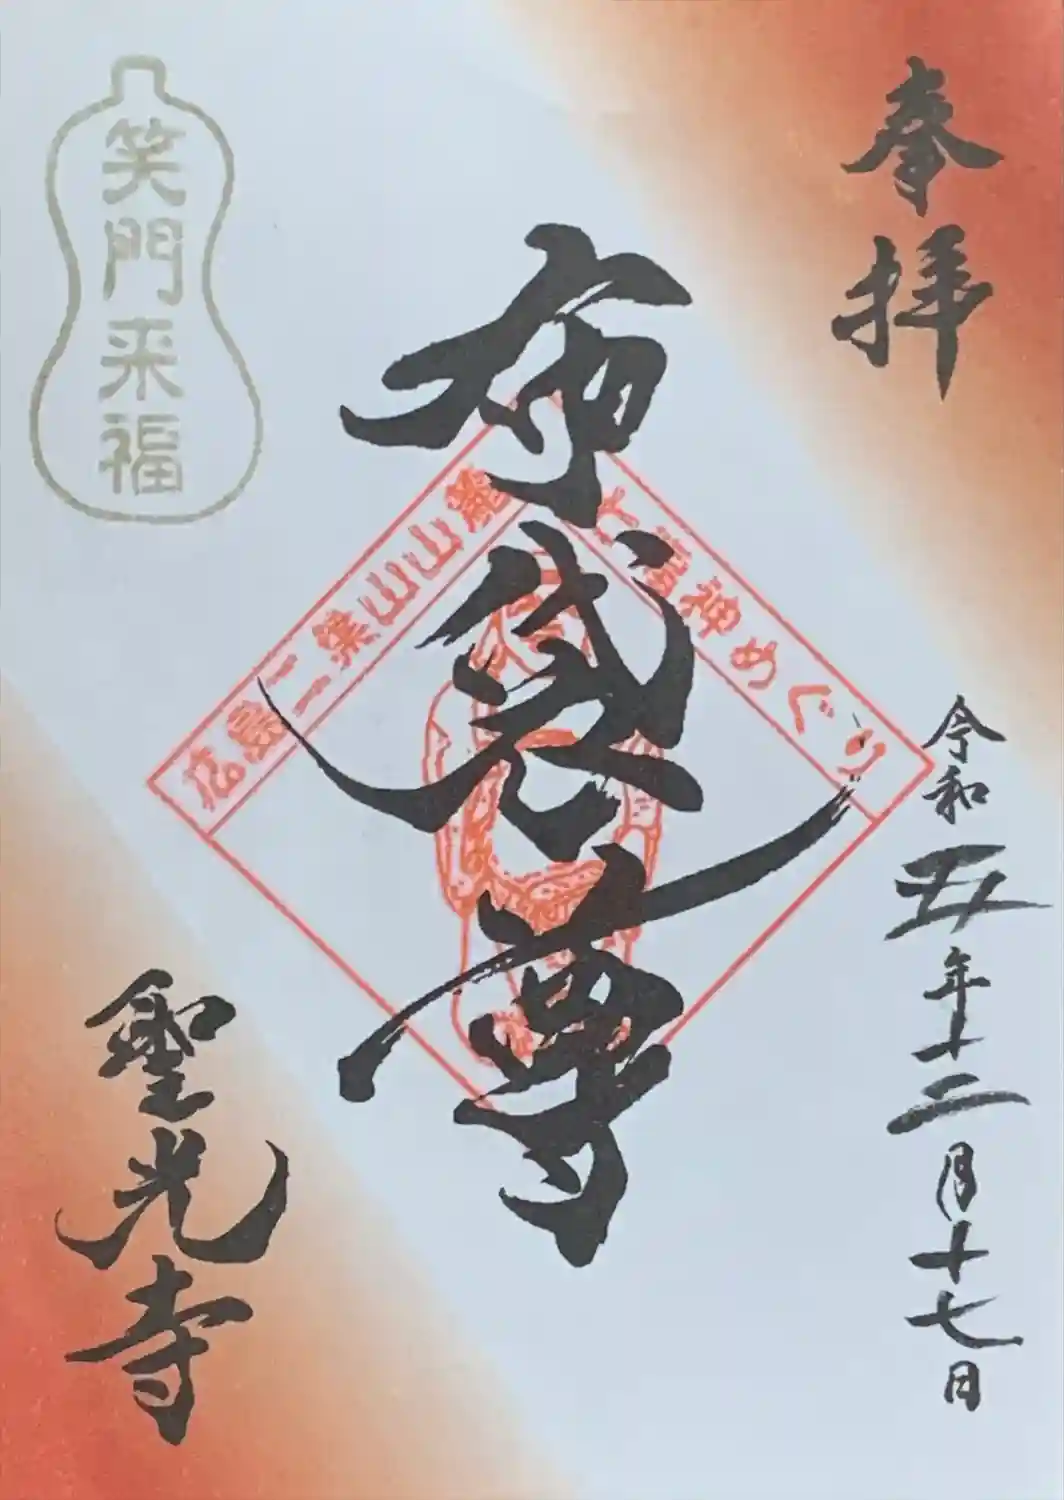 奉拝
令和五年十二月十七日
七福神めぐり
布袋尊
広島二葉山山麓
笑門来福
聖光寺